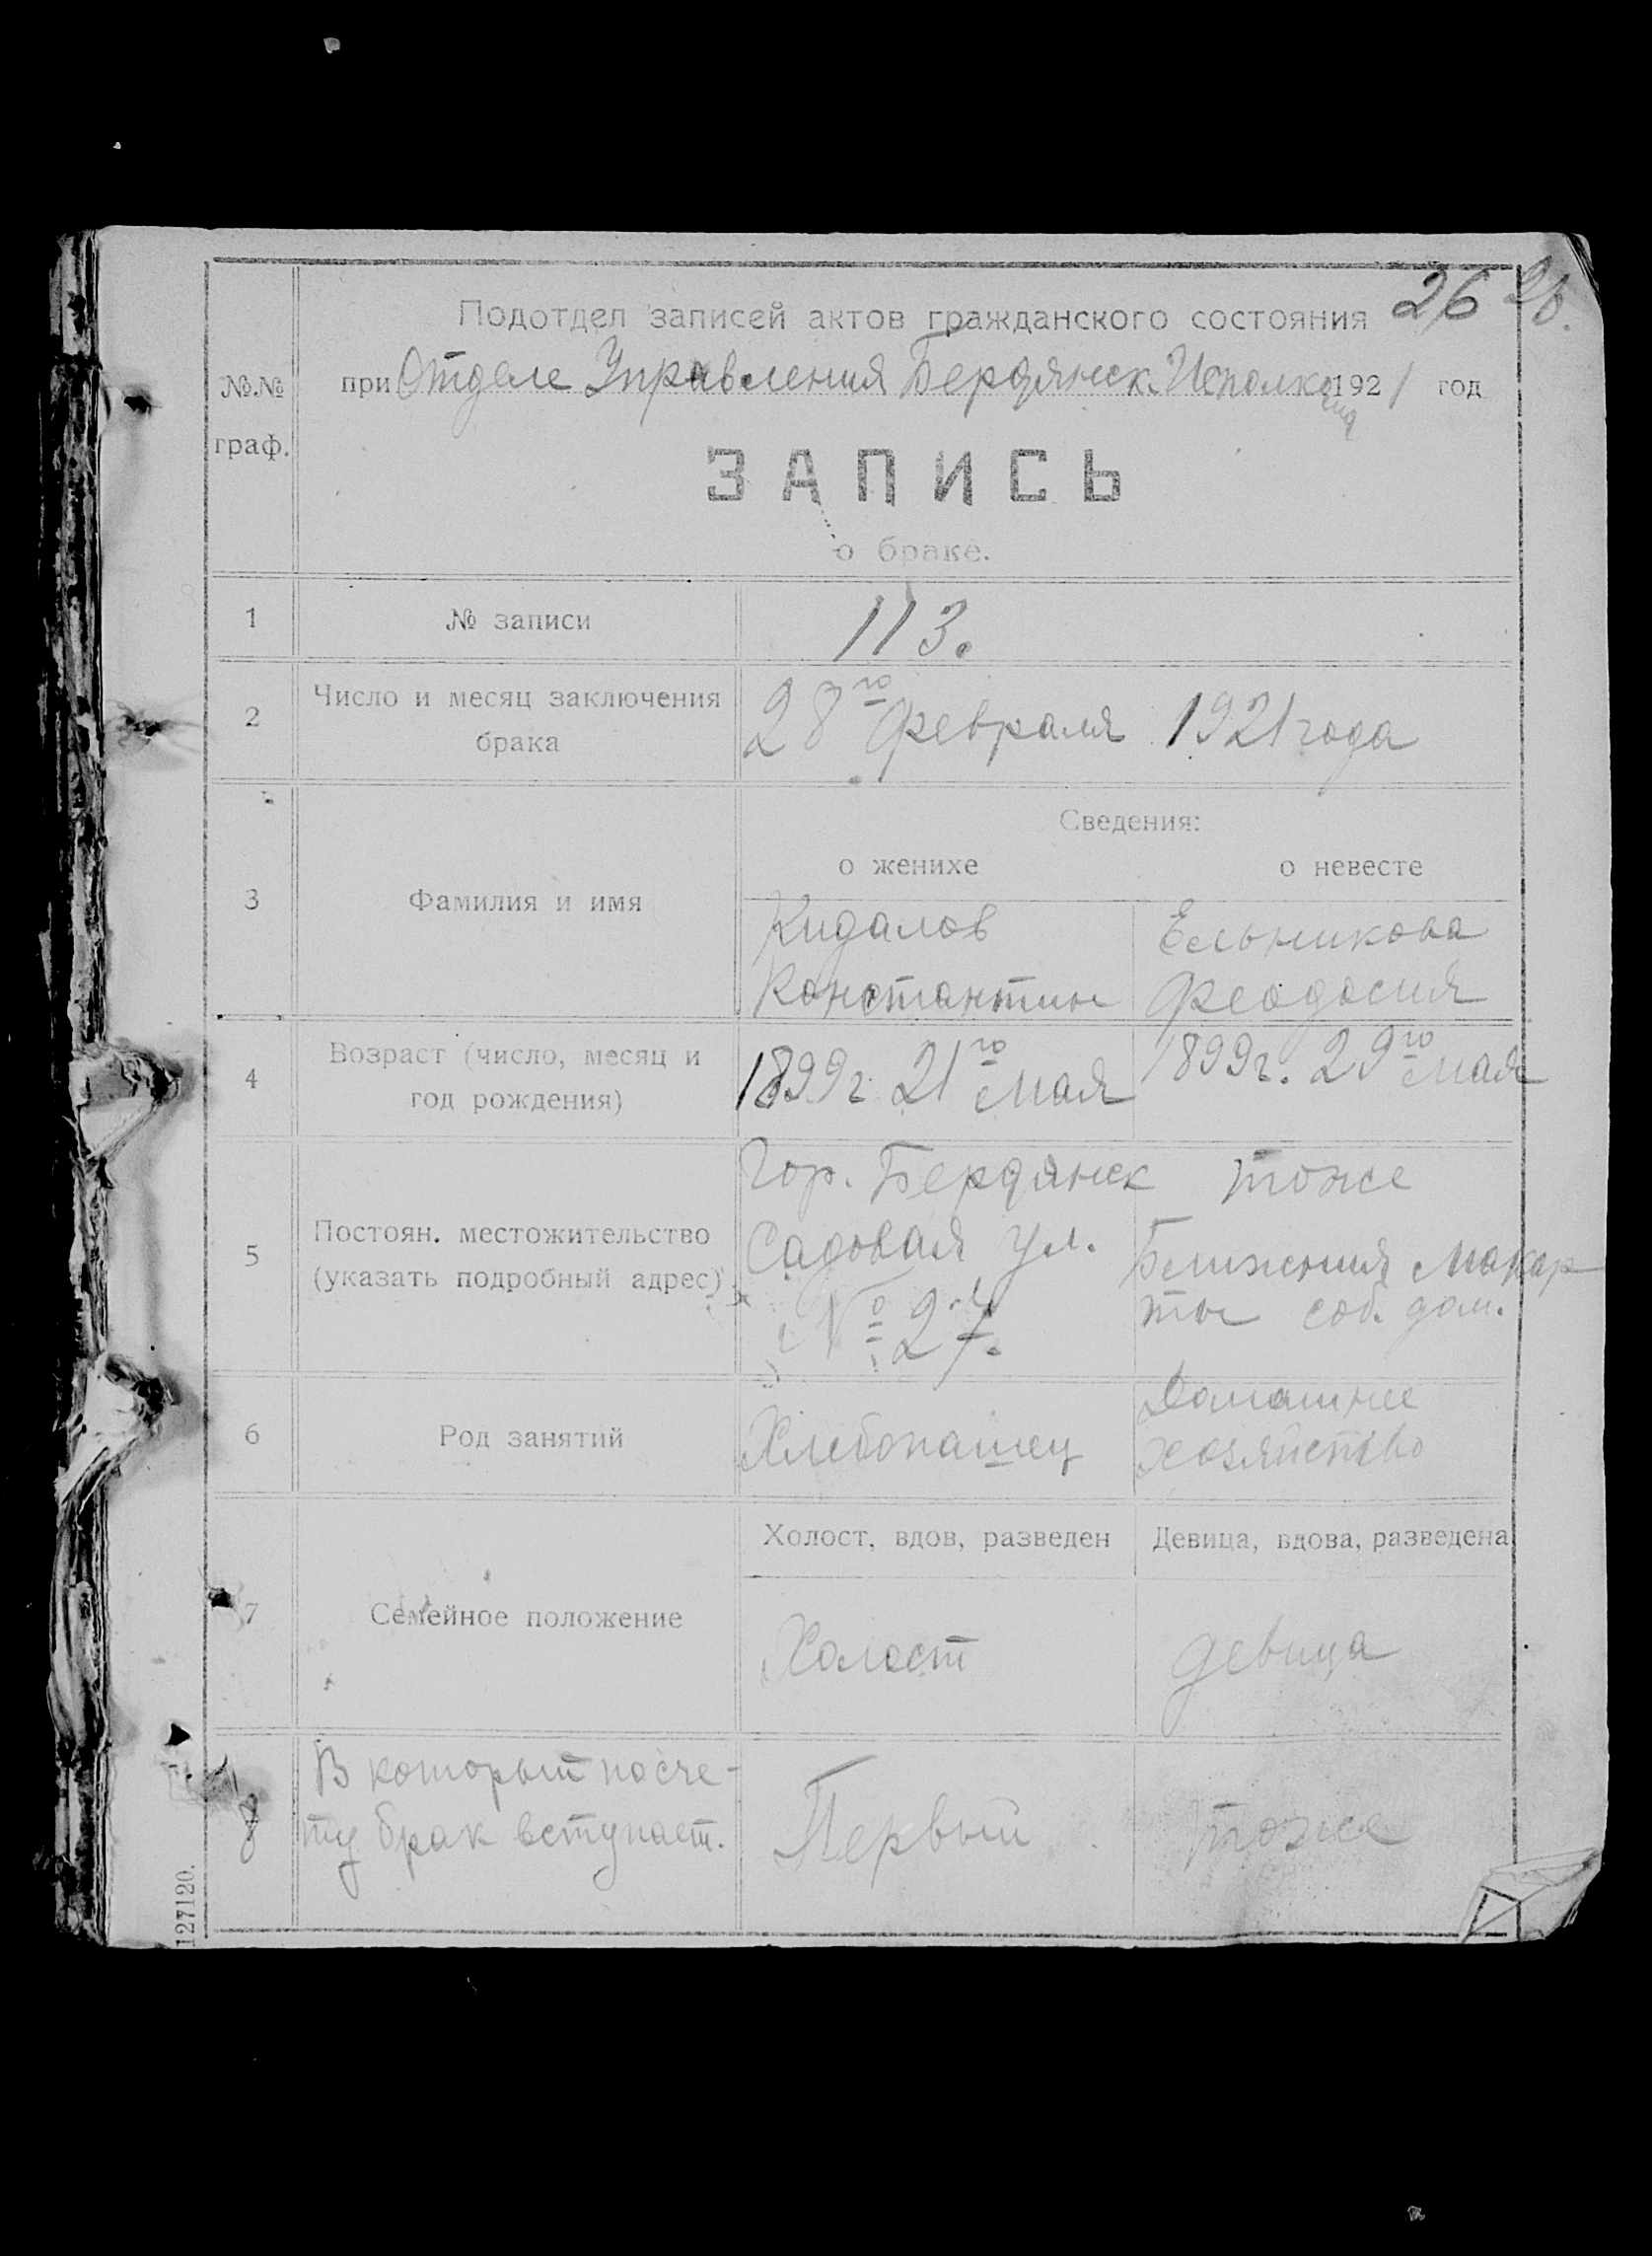 26 26.
Подотдел записей актов гражданского состояния
№№ граф.
при Отделе Управления Бердянск. Исполкома 1921 год
ЗАПИСЬ
о браке.
1 № записи 113.
2 Число и месяц заключения брака 28го февраля 1921 года
Сведения:
о женихе о невесте
3 Фамилия и имя
Кидалов Ельникова
Константин Феодосия
4 Возраст (число, месяц и год рождения)
1899г. 21го мая 1899г. 29го мая
5 Постоян. местожительство (указать подробный адрес)
Гор. Бердянск тоже
Садовая ул. Ближения Макар
№ 27. ты соб. дом.
6 Род занятий
Хлебопашец Домашнее
хозяйство
Холост, вдов, разведен Девица, вдова, разведена
7 Семейное положение
Холост девица
8 В который по сче-
ту брак вступает. Первый тоже
127120.